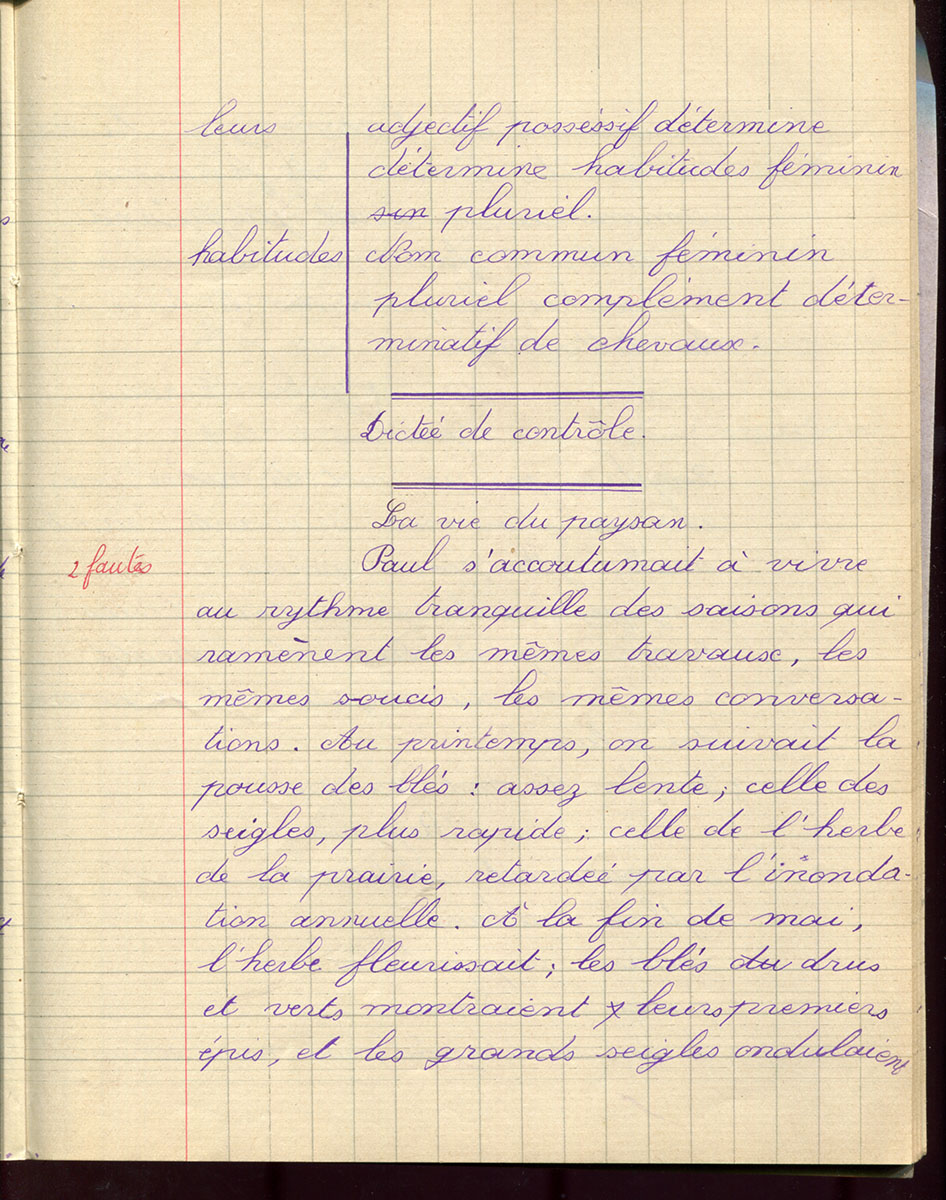 leurs adjectif posséssif détermine
détermine habitudes féminin
sin pluriel.
habitudes Nom commun féminin
pluriel complément déter-
minatif de chevaux.
Dictéé de contrôle.
La vie du paysan.
2 fautes Paul s'accoutumait à vivre
au rythme tranquille des saisons qui
ramènent les mêmes travaux, les
mêmes soucis, les mêmes conversa-
tions. Au printemps, on suivait la
pousse des blés : assez lente; celle des
seigles, plus rapide; celle de l'herbe
de la prairie, retardéé par l'inonda-
tion annuelle. À la fin de mai,
l'herbe fleurissait; les blés du drus
et verts montraient leurs premiers
épis, et les grands seigles ondulaient